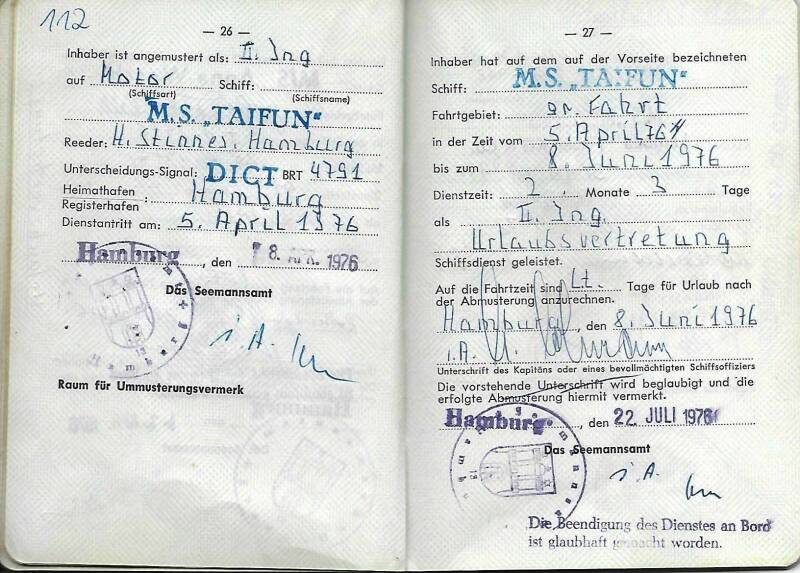 112
— 26 —
Inhaber ist angemustert als: II. Ing
auf Motor Schiff:
(Schiffsart) (Schiffsname)
M.S. „TAIFUN"
Reeder: H. Stinnes, Hamburg
Unterscheidungs-Signal: DICT BRT 4791
Heimathafen
Registerhafen : Hamburg
Dienstantritt am: 5. April 1976
Hamburg, den 8. APR. 1976
Das Seemannsamt
i. A.
Raum für Ummusterungsvermerk
— 27 —
Inhaber hat auf dem auf der Vorseite bezeichneten
Schiff: M.S. „TAIFUN"
Fahrtgebiet: gr. Fahrt
in der Zeit vom 5. April 76
bis zum 8. Juni 1976
Dienstzeit: 2 Monate 3 Tage
als II. Ing.
Urlaubsvertretung
Schiffsdienst geleistet.
Auf die Fahrtzeit sind Lt. Tage für Urlaub nach
der Abmusterung anzurechnen.
Hamburg, den 8. Juni 1976
i.A.
Unterschrift des Kapitäns oder eines bevollmächtigten Schiffsoffiziers
Die vorstehende Unterschrift wird beglaubigt und die
erfolgte Abmusterung hiermit vermerkt.
Hamburg, den 22. JULI 1976
Das Seemannsamt
i. A.
Die Beendigung des Dienstes an Bord
ist glaubhaft gemacht worden.